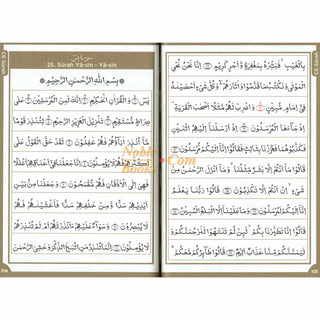 سورة يس
25. Sūrah Yā-sīn - Yā-sin
بِسْمِ اللهِ الرَّحْمٰنِ الرَّحِيْمِ
يٰسٓ وَالْقُرْاٰنِ الْحَكِيْمِ اِنَّكَ لَمِنَ الْمُرْسَلِيْنَ عَلٰى
صِرَاطٍ مُّسْتَقِيْمٍ تَنْزِيْلَ الْعَزِيْزِ الرَّحِيْمِ لِتُنْذِرَ قَوْمًا
مَّآ اُنْذِرَ اٰبَآؤُهُمْ فَهُمْ غٰفِلُوْنَ لَقَدْ حَقَّ الْقَوْلُ عَلٰٓى
اَكْثَرِهِمْ فَهُمْ لَا يُؤْمِنُوْنَ اِنَّا جَعَلْنَا فِيْٓ اَعْنَاقِهِمْ اَغْلٰلًا
فَهِيَ اِلَى الْاَذْقَانِ فَهُمْ مُّقْمَحُوْنَ وَجَعَلْنَا مِنْۢ بَيْنِ
اَيْدِيْهِمْ سَدًّا وَّمِنْ خَلْفِهِمْ سَدًّا فَاَغْشَيْنٰهُمْ فَهُمْ
لَا يُبْصِرُوْنَ وَسَوَآءٌ عَلَيْهِمْ ءَاَنْذَرْتَهُمْ اَمْ لَمْ تُنْذِرْهُمْ
لَا يُؤْمِنُوْنَ اِنَّمَا تُنْذِرُ مَنِ اتَّبَعَ الذِّكْرَ وَخَشِيَ الرَّحْمٰنَ
104
بِالْغَيْبِ فَبَشِّرْهُ بِمَغْفِرَةٍ وَّاَجْرٍ كَرِيْمٍ اِنَّا نَحْنُ نُحْيِ
الْمَوْتٰى وَنَكْتُبُ مَا قَدَّمُوْا وَاٰثَارَهُمْ وَكُلَّ شَيْءٍ اَحْصَيْنٰهُ
فِيْٓ اِمَامٍ مُّبِيْنٍ وَاضْرِبْ لَهُمْ مَّثَلًا اَصْحٰبَ الْقَرْيَةِ
اِذْ جَآءَهَا الْمُرْسَلُوْنَ اِذْ اَرْسَلْنَآ اِلَيْهِمُ اثْنَيْنِ
فَكَذَّبُوْهُمَا فَعَزَّزْنَا بِثَالِثٍ فَقَالُوْٓا اِنَّآ اِلَيْكُمْ مُّرْسَلُوْنَ قَالُوْا
مَآ اَنْتُمْ اِلَّا بَشَرٌ مِّثْلُنَا وَمَآ اَنْزَلَ الرَّحْمٰنُ مِنْ
شَيْءٍ اِنْ اَنْتُمْ اِلَّا تَكْذِبُوْنَ قَالُوْا رَبُّنَا يَعْلَمُ
اِنَّآ اِلَيْكُمْ لَمُرْسَلُوْنَ وَمَا عَلَيْنَآ اِلَّا الْبَلٰغُ الْمُبِيْنُ
قَالُوْٓا اِنَّا تَطَيَّرْنَا بِكُمْ لَئِنْ لَّمْ تَنْتَهُوْا لَنَرْجُمَنَّكُمْ
وَلَيَمَسَّنَّكُمْ مِّنَّا عَذَابٌ اَلِيْمٌ قَالُوْا طَآئِرُكُمْ مَّعَكُمْ
105
Noble
Books.Com